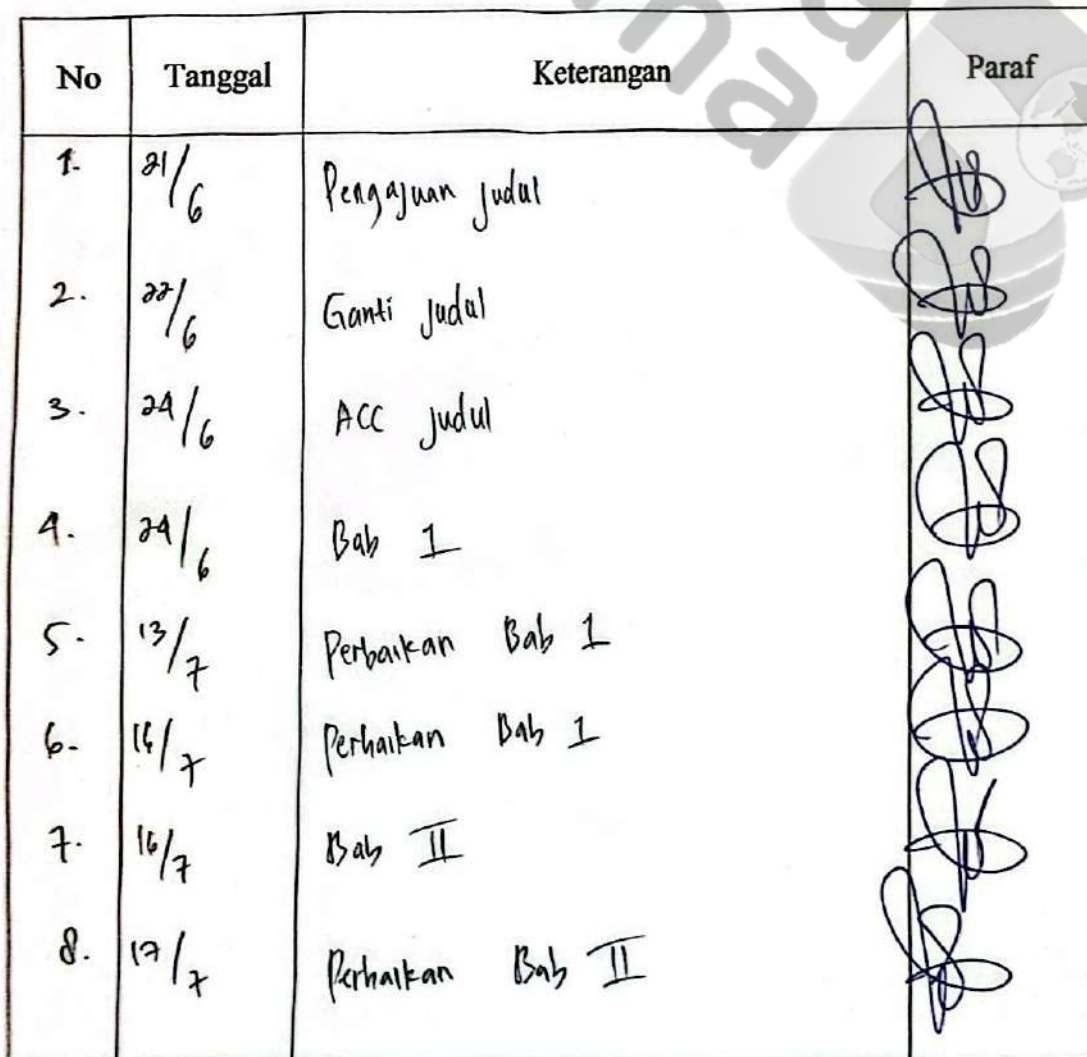 No Tanggal Keterangan Paraf
1. 21/6 Pengajuan judul
2. 22/6 Ganti judul
3. 24/6 ACC judul
4. 24/6 Bab 1
5. 13/7 Perbaikan Bab 1
6. 16/7 Perbaikan Bab 1
7. 16/7 Bab II
8. 17/7 Perbaikan Bab II